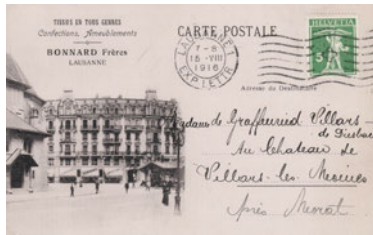 TISSUS EN TOUS GENRES
Confections, Ameublements
BONNARD Frères
LAUSANNE
CARTE POSTALE
LAUSANNE 1
7-8
15.VIII
1916
EXP. LETTR.
HELVETIA
5
Adresse du Destinataire
Madame de Graffenried Villars
de Diesbach
Au Chateau de
Villars-les-Moines
près Morat